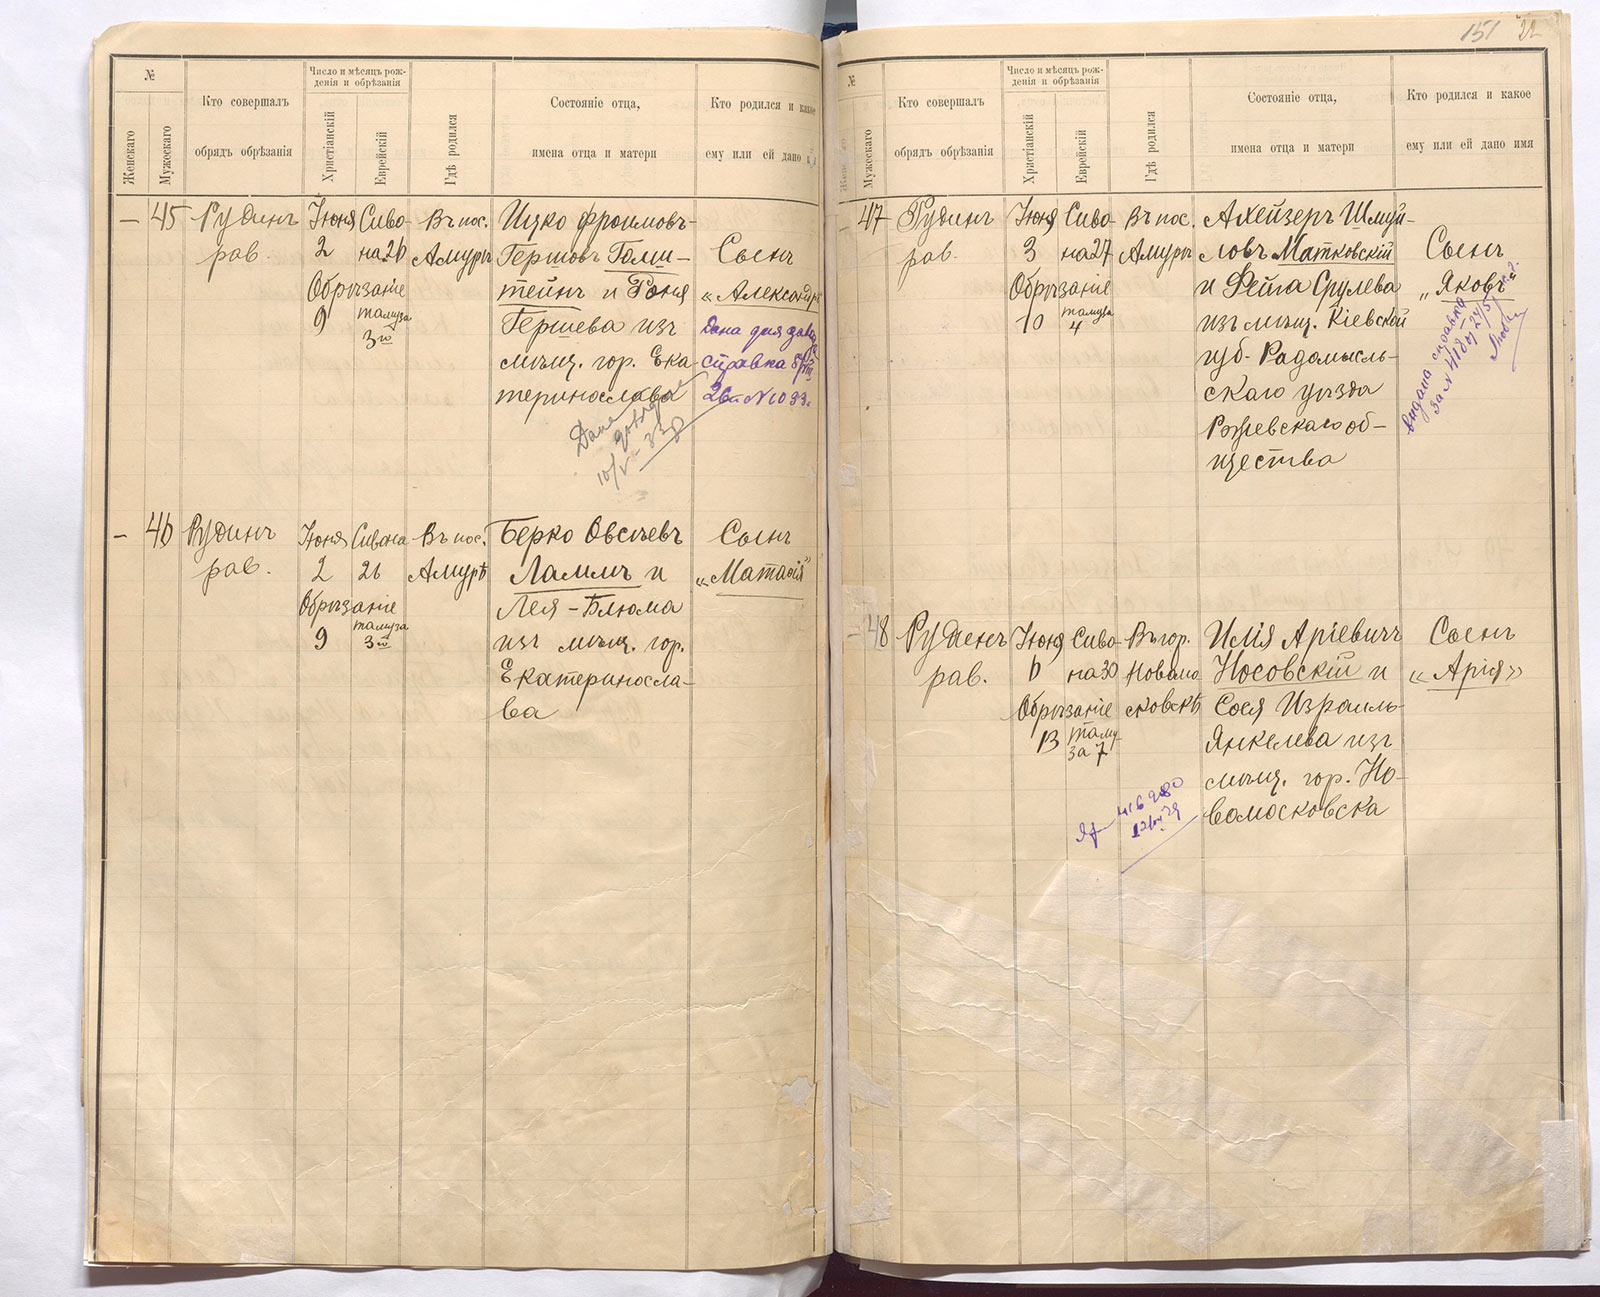 №
Женскаго
Мужескаго
Кто совершалъ
обрядъ обрѣзанія
Число и мѣсяцъ рож-
денія и обрѣзанія
Христіанскій
Еврейскій
Гдѣ родился
Состояніе отца,
имена отца и матери
Кто родился и какое
ему или ей дано
– 45
Рудинъ
рав.
Іюня
2
Сиво-
на 26
Обрѣзаніе
9
тамуза
3го
Въ пос.
Амуръ
Ицко Фроимовъ-
Гершовъ
тейнъ и Роня
Гершева изъ
мѣщ. гор. Ека-
теринослава
Сынъ
«Александръ
Дана для
справка
26 № 1033.
Дана
10/V – 33
– 46
Рудинъ
рав.
Іюня
2
Сивана
26
Обрѣзаніе
9
тамуза
3го
Въ пос.
Амурѣ
Берко Овсѣевъ
Ламмъ и
Лея-Блюма
изъ мѣщ. гор.
Екатериносла-
ва
Сынъ
«Матасія»
151 22
№
Мужескаго
Кто совершалъ
обрядъ обрѣзанія
Число и мѣсяцъ рож-
денія и обрѣзанія
Христіанскій
Еврейскій
Гдѣ родился
Состояніе отца,
имена отца и матери
Кто родился и какое
ему или ей дано имя
– 47
Рудинъ
рав.
Іюня
3
Сиво-
на 27
Обрѣзаніе
10
тамуза
4
Въ пос.
Амуръ
Ахейзеръ Шмуй-
ловъ Матковскій
и Фейга Срулева
изъ мѣщ. Кіевской
губ. Радомысль-
скаго уѣзда
Ржевскаго об-
щества
Сынъ
„Яковъ
видана справка
за №
– 48
Рудинъ
рав.
Іюня
6
Сиво-
на 30
Обрѣзаніе
13
таму-
за 7
Въ гор.
Новомо
сковскѣ
Илія Аріевичъ
Носовскій и
Сося Израиль-
Янкелева изъ
мѣщ. гор. Но-
вомосковска
Сынъ
«Арія»